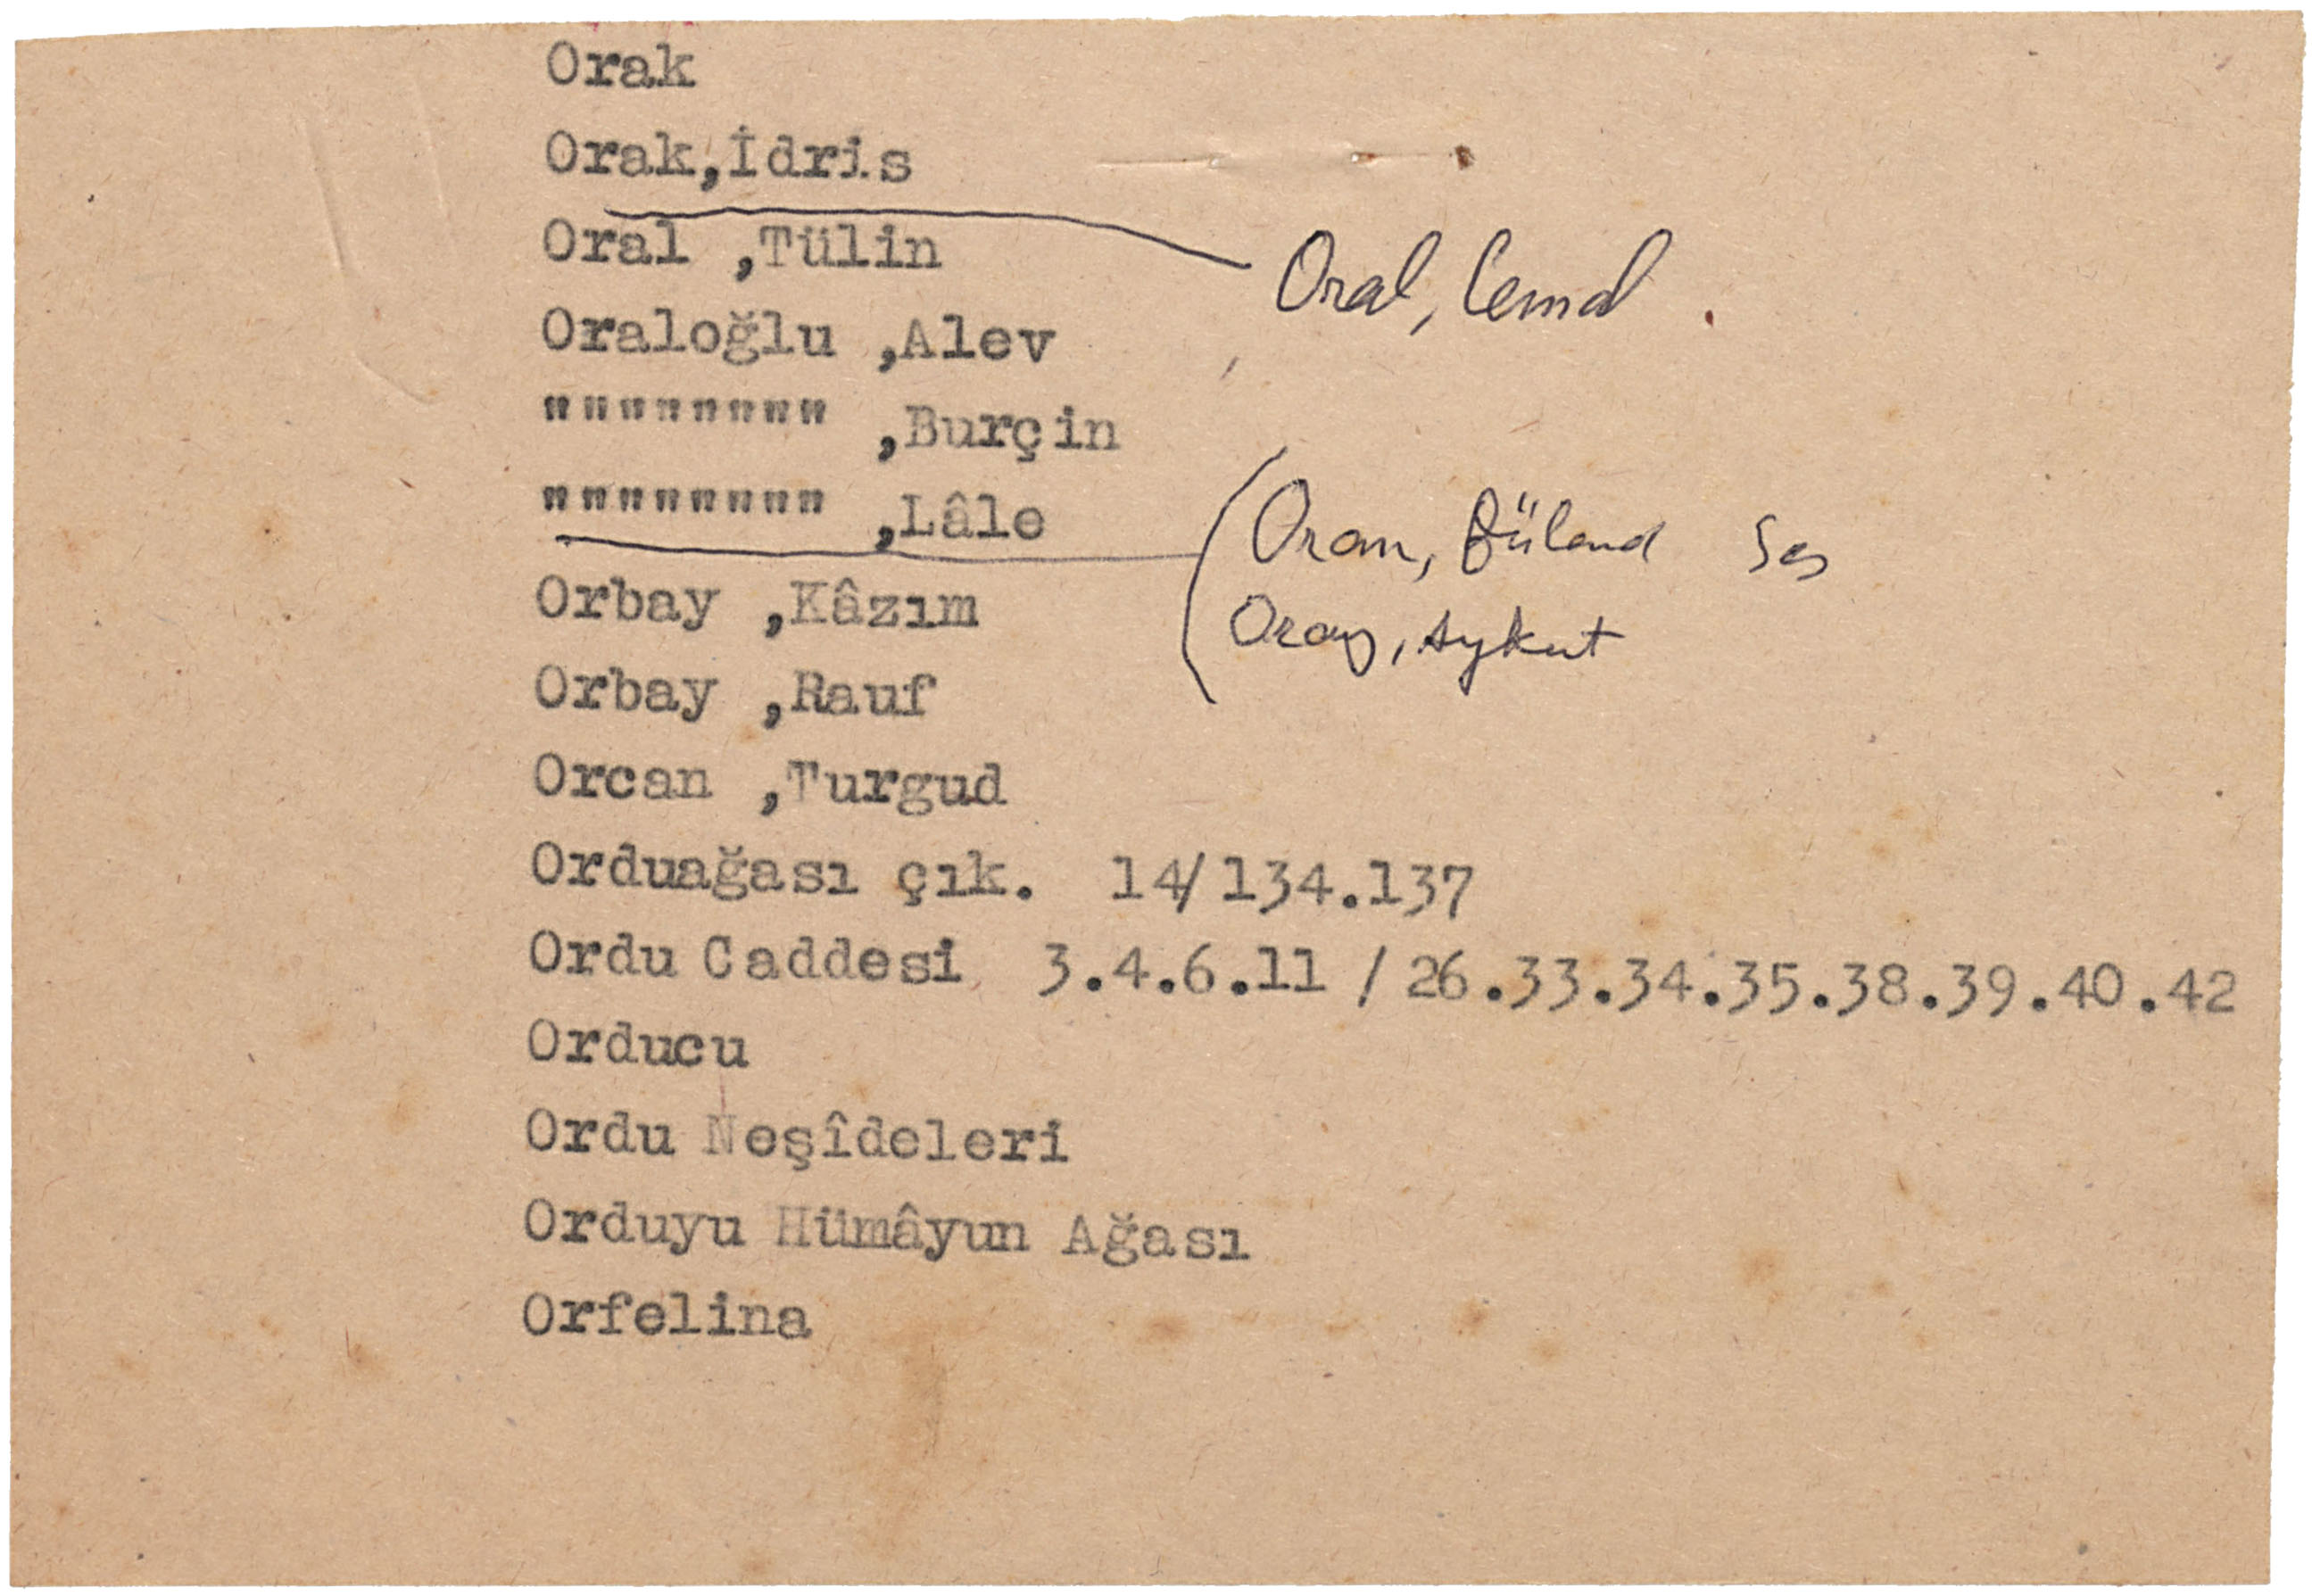 Orak
Orak,İdris
Oral ,Tülin
Oral, Cemal .
Oraloğlu ,Alev
"""""""" ,Burçin
"""""""" ,Lâle
Oran, Büland Ses
Oray, Aykut
Orbay ,Kâzım
Orbay ,Rauf
Orcan ,Turgud
Orduağası çık. 14/134.137
Ordu Caddesi 3.4.6.11 / 26.33.34.35.38.39.40.42
Orducu
Ordu Neşîdeleri
Orduyu Hümâyun Ağası
Orfelina